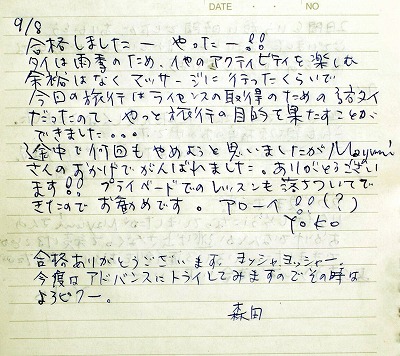 DATE ・ ・ NO
9/8
合格しましたー やったー!!
タイは雨季のため、他のアクティビティを楽しむ
余裕はなく マッサージに行ったくらいで
今回の旅行はライセンスの取得のための訪タイ
だったので、やっと旅行の目的を果たすことが
できました。。。
途中で何回もやめようと思いましたがMayumi
さんのおかげでがんばれました。ありがとうござい
ます!! プライベードでのレッスンも落ちついてで
きたので お勧めです。 アローイ!!(?)
YOKO
合格ありがとうございます。ヨッシャ、ヨッシャー。
今度は アドバンスにトライしてみますのでその時は
よろピクー。
森田